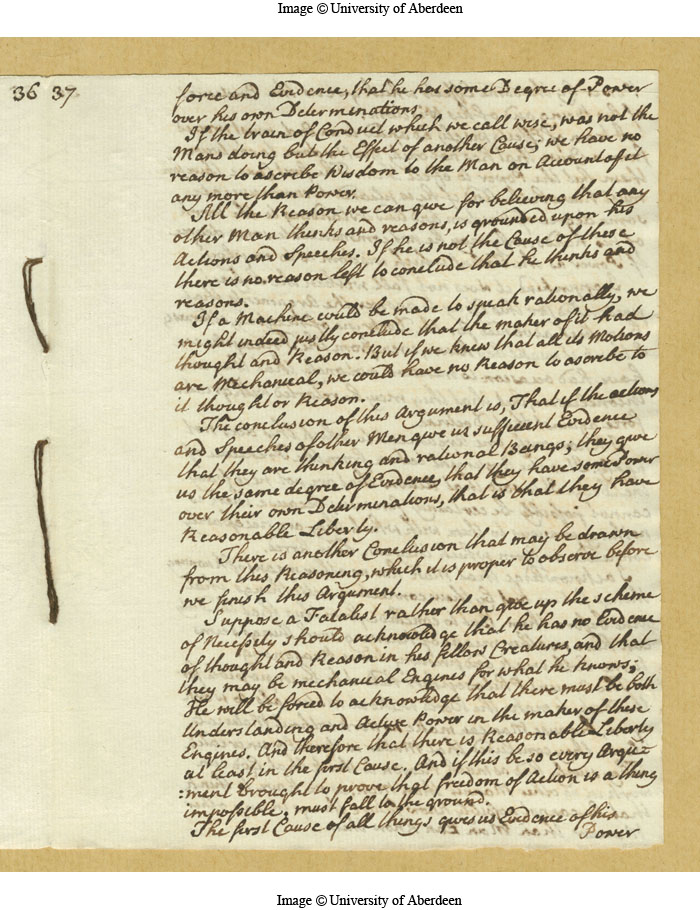 Image © University of Aberdeen
36 37
force and Evidence, that he has some Degree of Power
over his own Determinations
If the train of Conduct which we call wise, was not the
Mans doing but the Effect of another Cause; we have no
reason to ascribe Wisdom to the Man on Account of it
any more than Power.
All the Reason we can give for believing that any
other Man thinks and reasons, is grounded upon his
Actions and Speeches. If he is not the Cause of these
there is no reason left to conclude that he thinks and
reasons.
If a Machine could be made to speak rationally, we
might indeed justly conclude that the maker of it had
thought and Reason. But if we knew that all its Motions
are Mechanical, we could have no Reason to ascribe to
it thought or Reason.
The conclusion of this Argument is, That if the actions
and Speeches of other Men give us sufficient Evidence
that they are thinking and rational Beings; they give
us the same degree of Evidence, that they have some Power
over their own Determinations, that is that they have
Reasonable Liberty.
There is another Conclusion that may be drawn
from this Reasoning, which it is proper to observe before
we finish this Argument.
Suppose a Fatalist rather than give up the scheme
of Necessity should acknowledge that he has no Evidence
of thought and Reason in his fellow Creatures, and that
they may be mechanical Engines for what he knows;
He will be forced to acknowledge that there must be both
Understanding and Active Power in the maker of these
Engines. And therefore that there is Reasonable Liberty
at least in the first Cause. And if this be so every Argu-
:ment brought to prove that freedom of Action is a thing
impossible, must fall to the ground.
The first Cause of all things gives us Evidence of his
Power
Image © University of Aberdeen